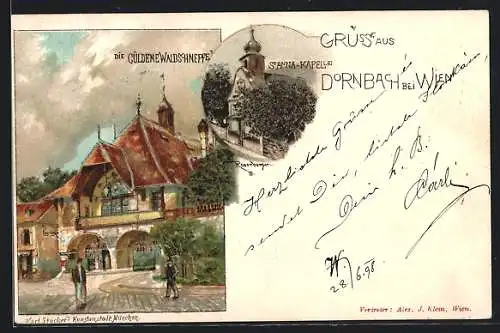 DIE GÜLDENE WALDSCHNEPFE
ST. ANNA-KAPELLE
GRUSS AUS
DORNBACH BEI WIEN
Herzlichste Grüsse
sendet Dir, liebste
Dein
W. 28/6.98
Karl Stücker's Kunstanstalt, München.
Vertreter: Alex. J. Klein, Wien.